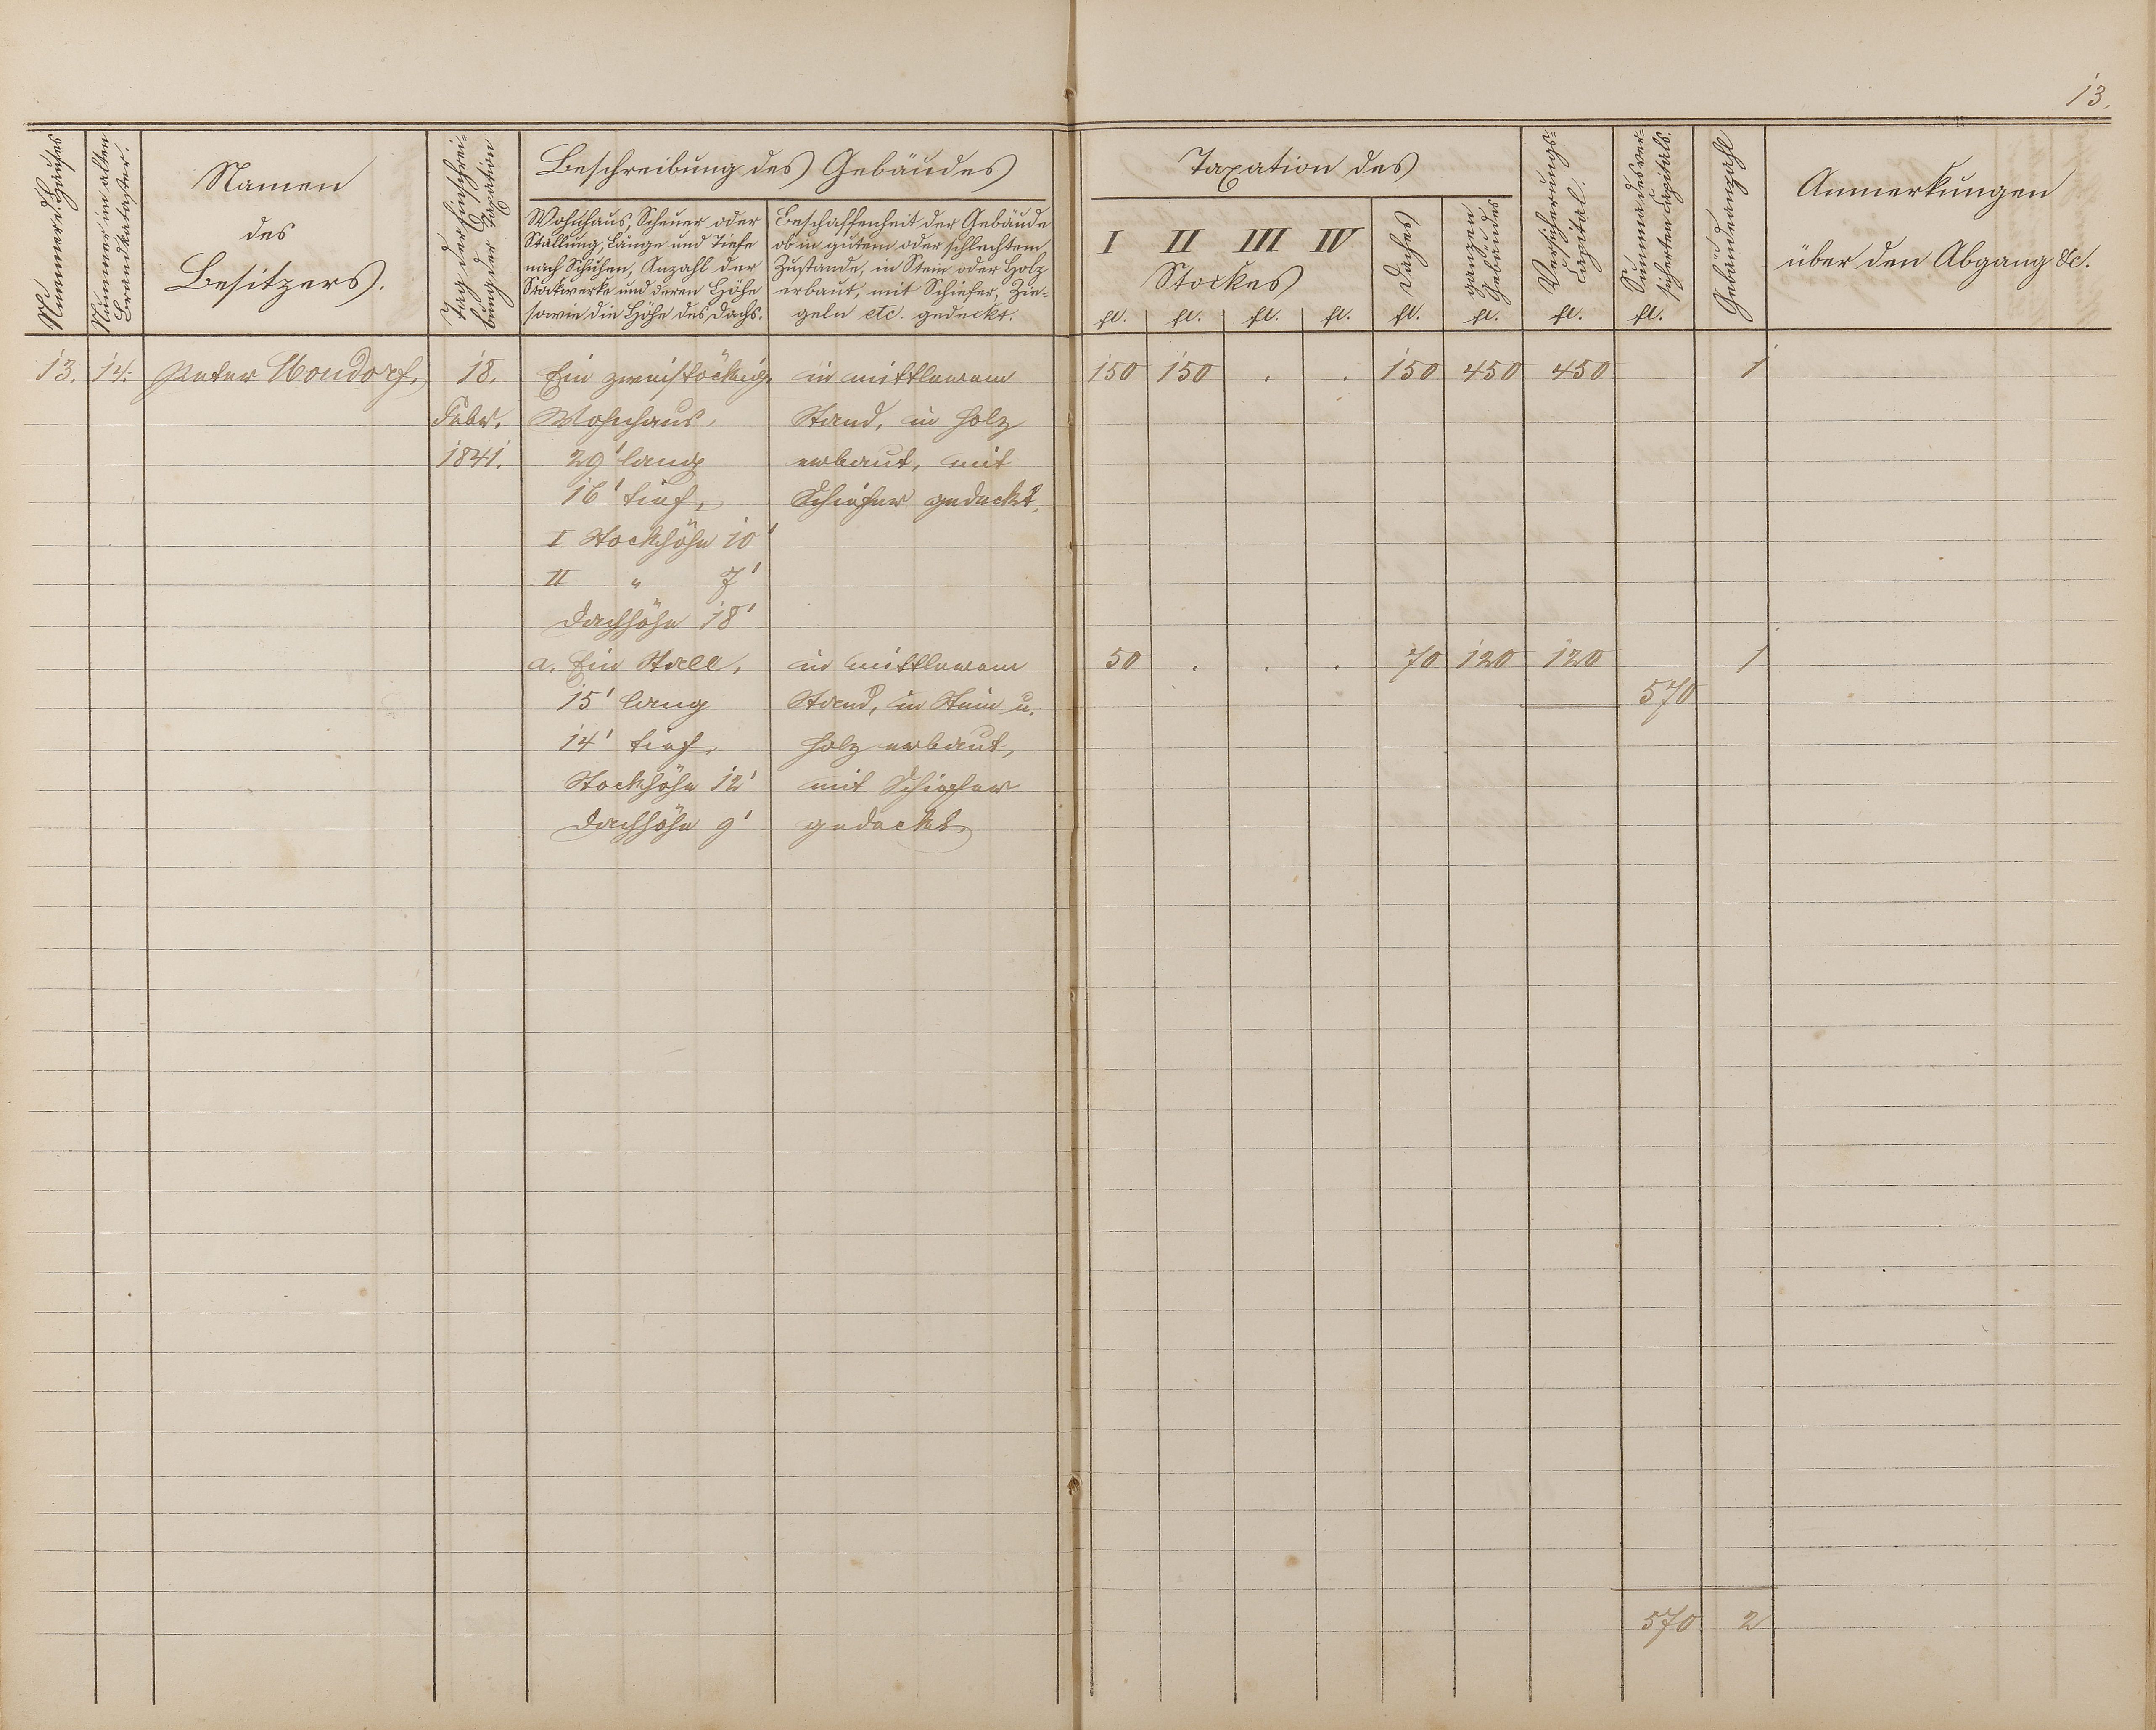 13.
Nummer d. Hauses
Nummer im alten
Brandkataster.
Namen
des
Besitzers.
Tag der Einschrei-
bung der Taxation
Beschreibung des Gebäudes
Wohnhaus, Scheuer oder
Stallung, Länge und Tiefe
nach Schuhen, Anzahl der
Stockwerke und deren Höhe
sowie die Höhe des Dachs.
Beschaffenheit der Gebäude
ob in gutem oder schlechtem
Zustande, in Stein oder Holz
erbaut, mit Schiefer, Zie-
geln etc. gedeckt.
Taxation des
I II III IV
Stockes
Daches
ganzen
Gebäudes
Versicherungs-
Capital.
Summa des ver-
sicherten Capitals.
Gebäudeanzahl
Anmerkungen
über den Abgang &c.
fl. fl. fl. fl. fl. fl. fl. fl.
13. 14. Peter Mondorf, 18. Ein zweistöckig. in mittlerem 150 150 . . 150 450 450 1
Febr. Wohnhaus, Stand, in Holz
1841. 29' lang erbaut, mit
16' tief, Schiefer gedeckt.
I Stockhöhe 10'
II " 7'
Dachhöhe 18'
a. Ein Stall, in mittlerem 50 . . . 70 120 120 1
15' lang Stand, in Stein u. 570
14' tief, Holz erbaut,
Stockhöhe 12' mit Schiefer
Dachhöhe 9' gedeckt.
570 2